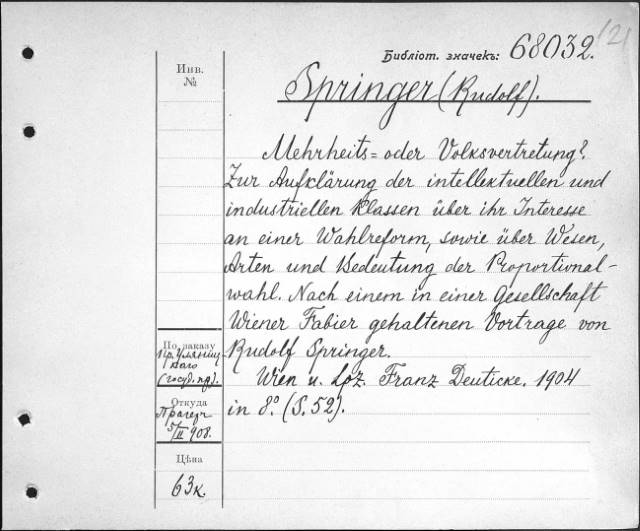 121
Библіот. значекъ: 68032.
Инв.
№
Springer (Rudolf).
Mehrheits= oder Volksvertretung?
Zur Aufklärung der intellektuellen und
industriellen Klassen über ihr Interesse
an einer Wahlreform, sowie über Wesen,
Arten und Bedeutung der Proportional-
wahl. Nach einem in einer Gesellschaft
Wiener Fabier gehaltenen Vortrage von
Rudolf Springer.
Wien u. Lpz. Franz Deuticke. 1904
in 8.° (S. 52).
По заказу
пр. Уляниц
каго
(госуд. пр.).
Откуда
Прагеръ
5/II 908.
Цѣна
63к.